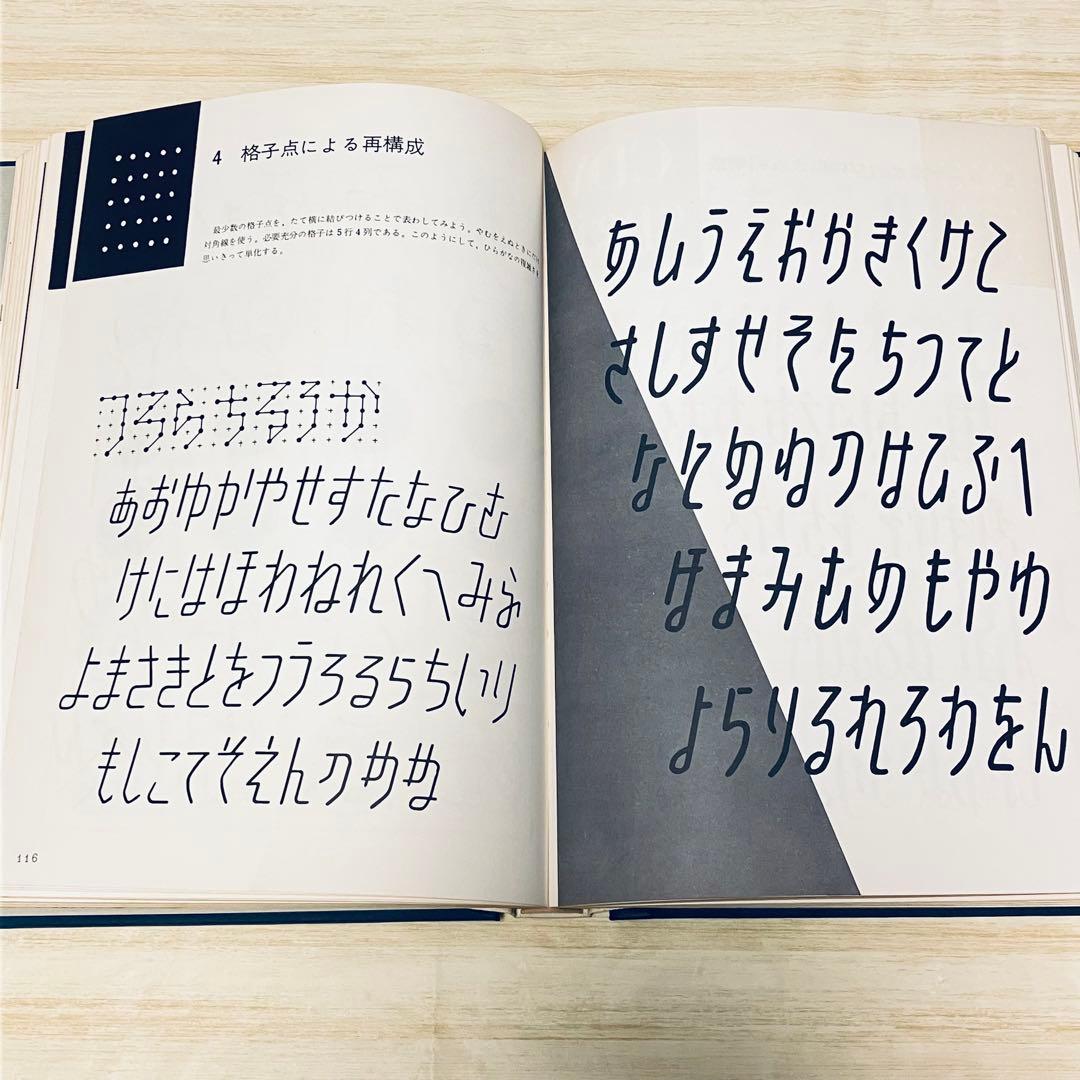 4 格子点による再構成
最少数の格子点を，たて横に結びつけることで表わしてみよう。やむをえぬときにだけ
対角線を使う。必要充分の格子は5行4列である。このようにして，ひらがなの複雑さを
思いきって単化する。
つろらちるうか
あおゆかやせすたなひむ
けにはほわねれくへみふ
よまさきとをつうろるらちいり
もしこてそえんのめぬ
116
あいうえおかきくけこ
さしすせそたちつてと
なにぬねのはひふへ
ほまみむめもやゆ
よらりるれろわをん